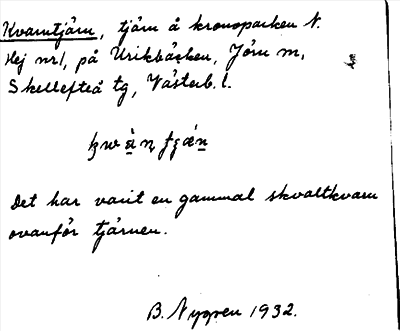 Kvarntjärn, tjärn å kronoparken N.
Hej nr 1, på Urikbäcken, Jörn sn,
Skellefteå tg, Västerb. l.
Det har varit en gammal skvaltkvarn
ovanför tjärnen.
B. Nygren 1932.